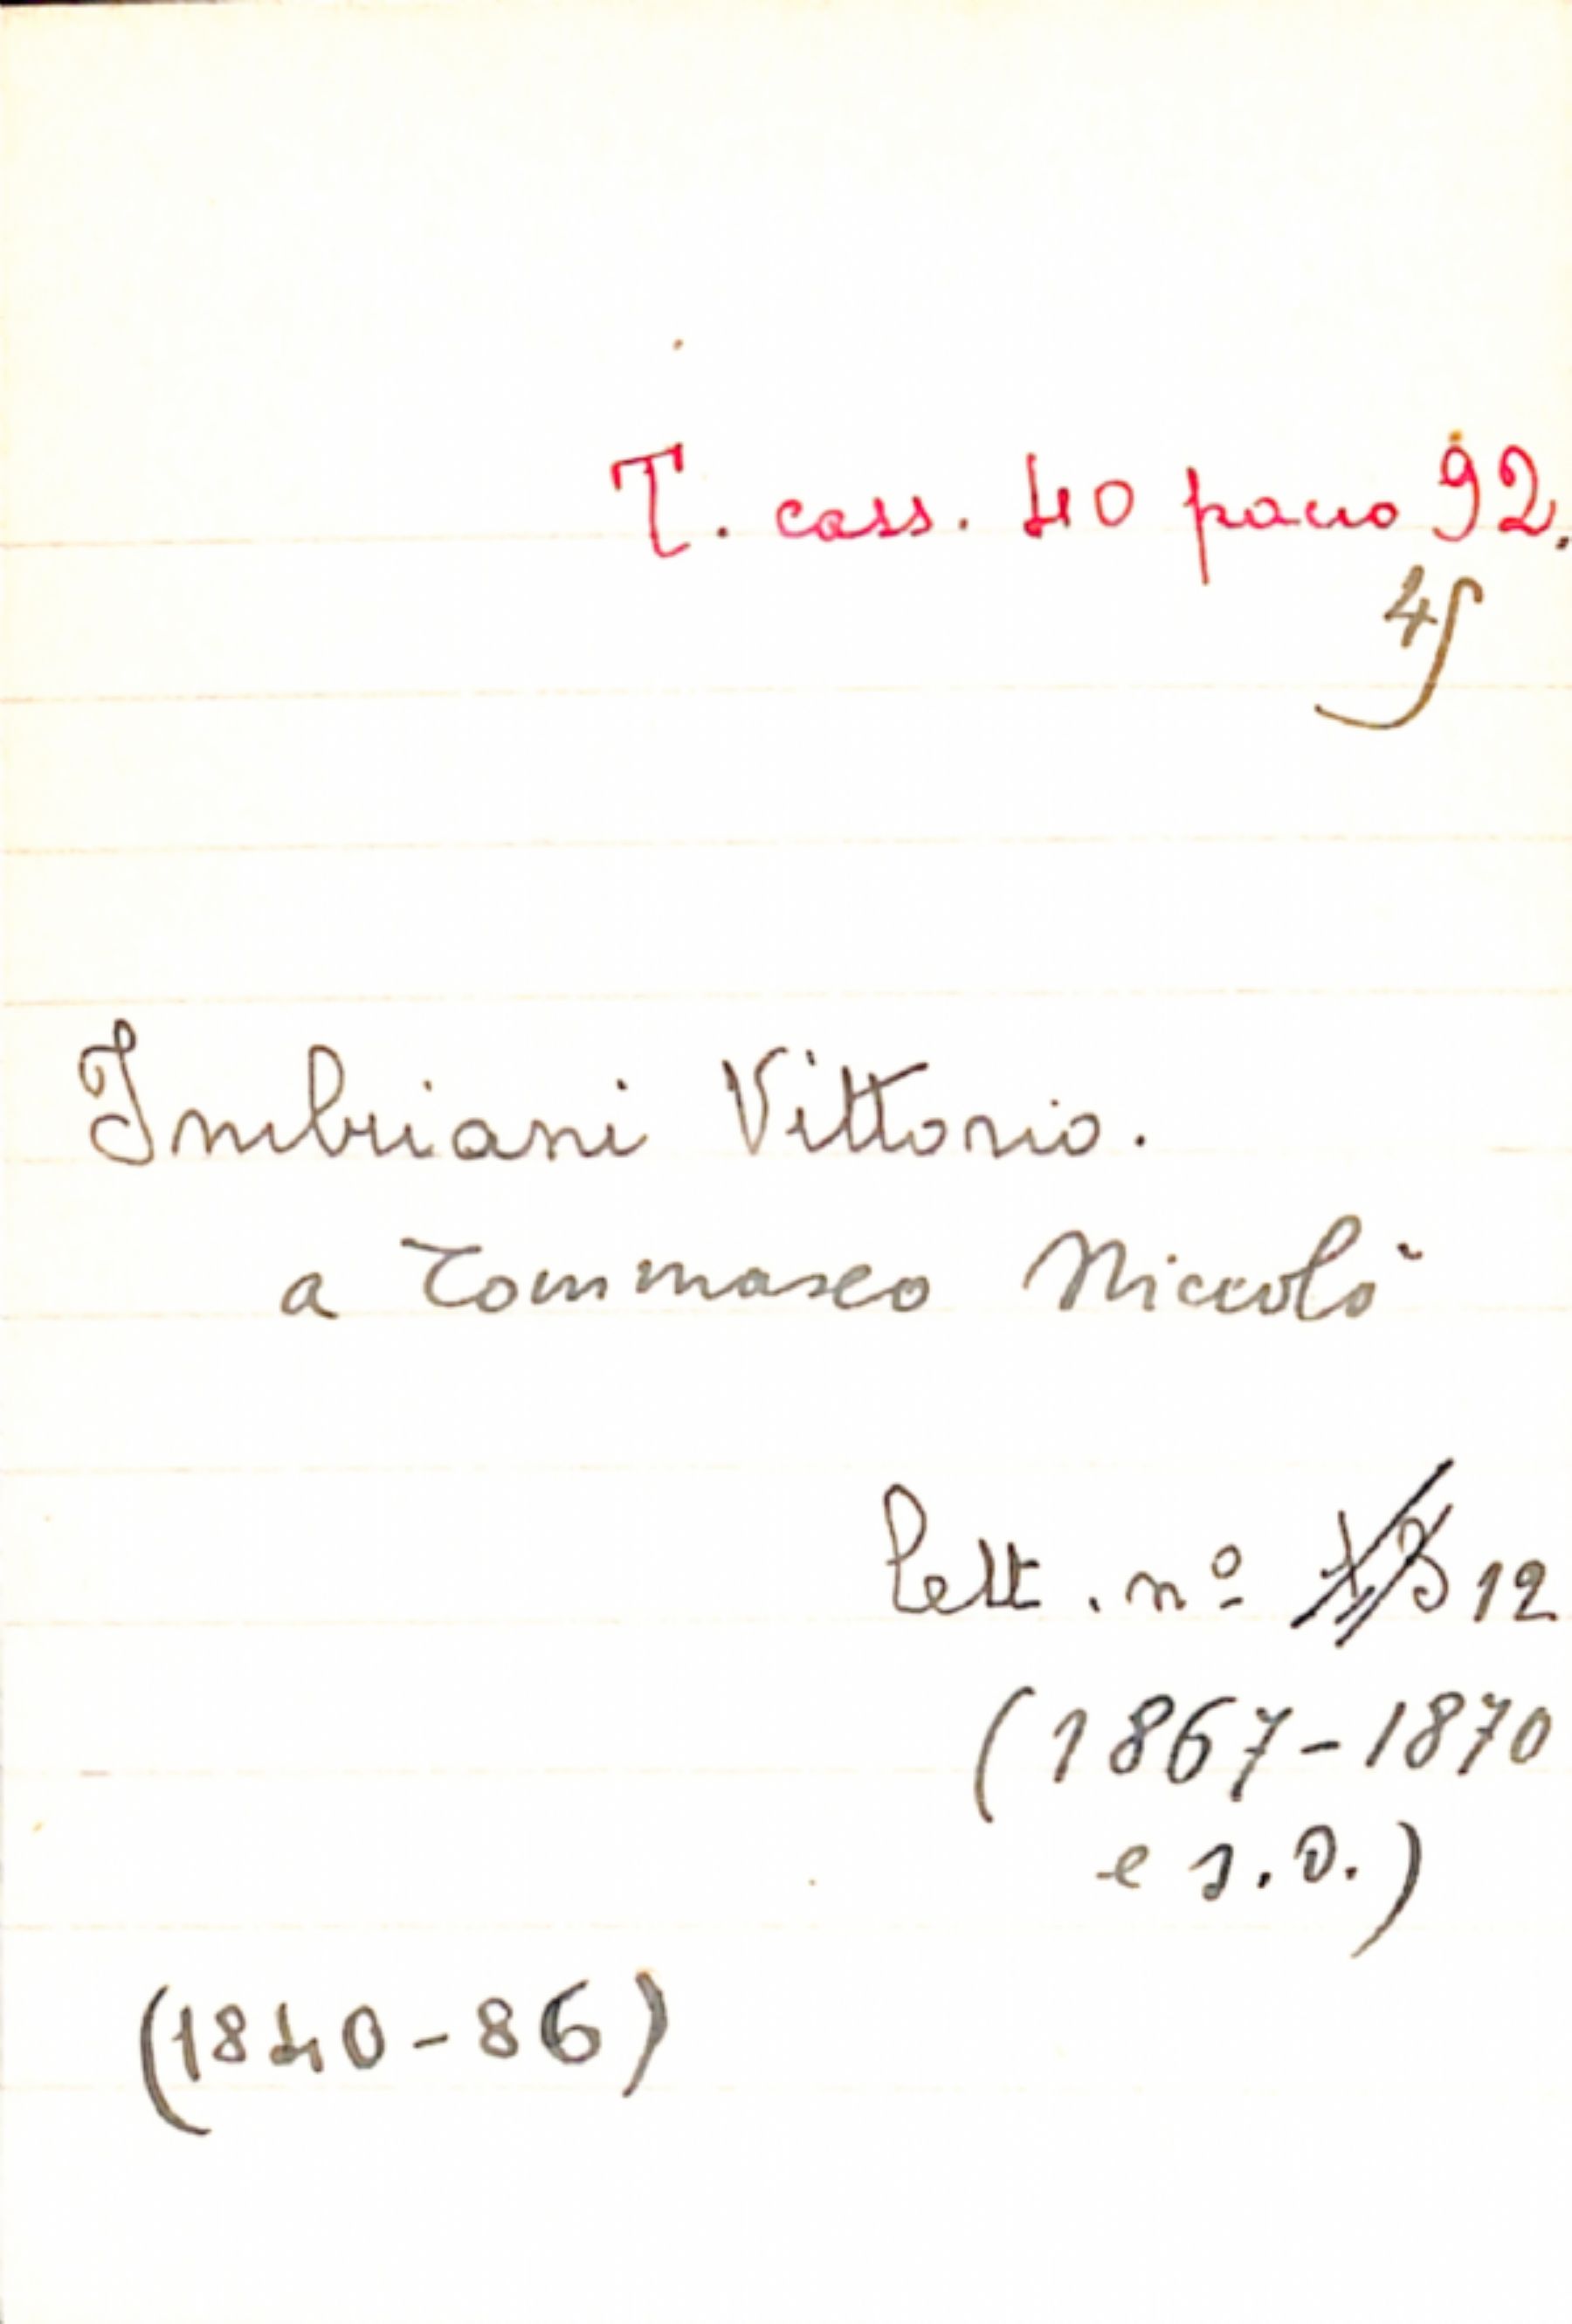 T. cass. 40 pacco 92.
4
Imbriani Vittorio.
a Tommaseo Niccolò
lett. n° 12
(1867-1870
e s.d.)
(1840-86)